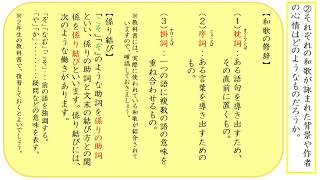 ②それぞれの和歌が詠まれた背景や作者
の心情はどのようなものだろうか。
【和歌の修辞】
(1)枕詞:ある語句を導き出すため、
その直前に置くもの。
(2)序詞:ある言葉を導き出すための
もの。
(3)掛詞:一つの語に複数の語の意味を
重ね合わせるもの。
※教科書には、実際に使われている和歌が紹介されて
いますので、確認しておきましょう。
【係り結び】
「こそ」「ぞ」のような助詞を係りの助詞
といい、係りの助詞と文末の結び方との関
係を係り結びといいます。係り結びには、
次のような働きがあります。
「ぞ」「なむ」「こそ」…前の語を強調する。
「や」「か」… 疑問などの意味を表す。
※2年生の教科書で、復習しておくとよいでしょう。